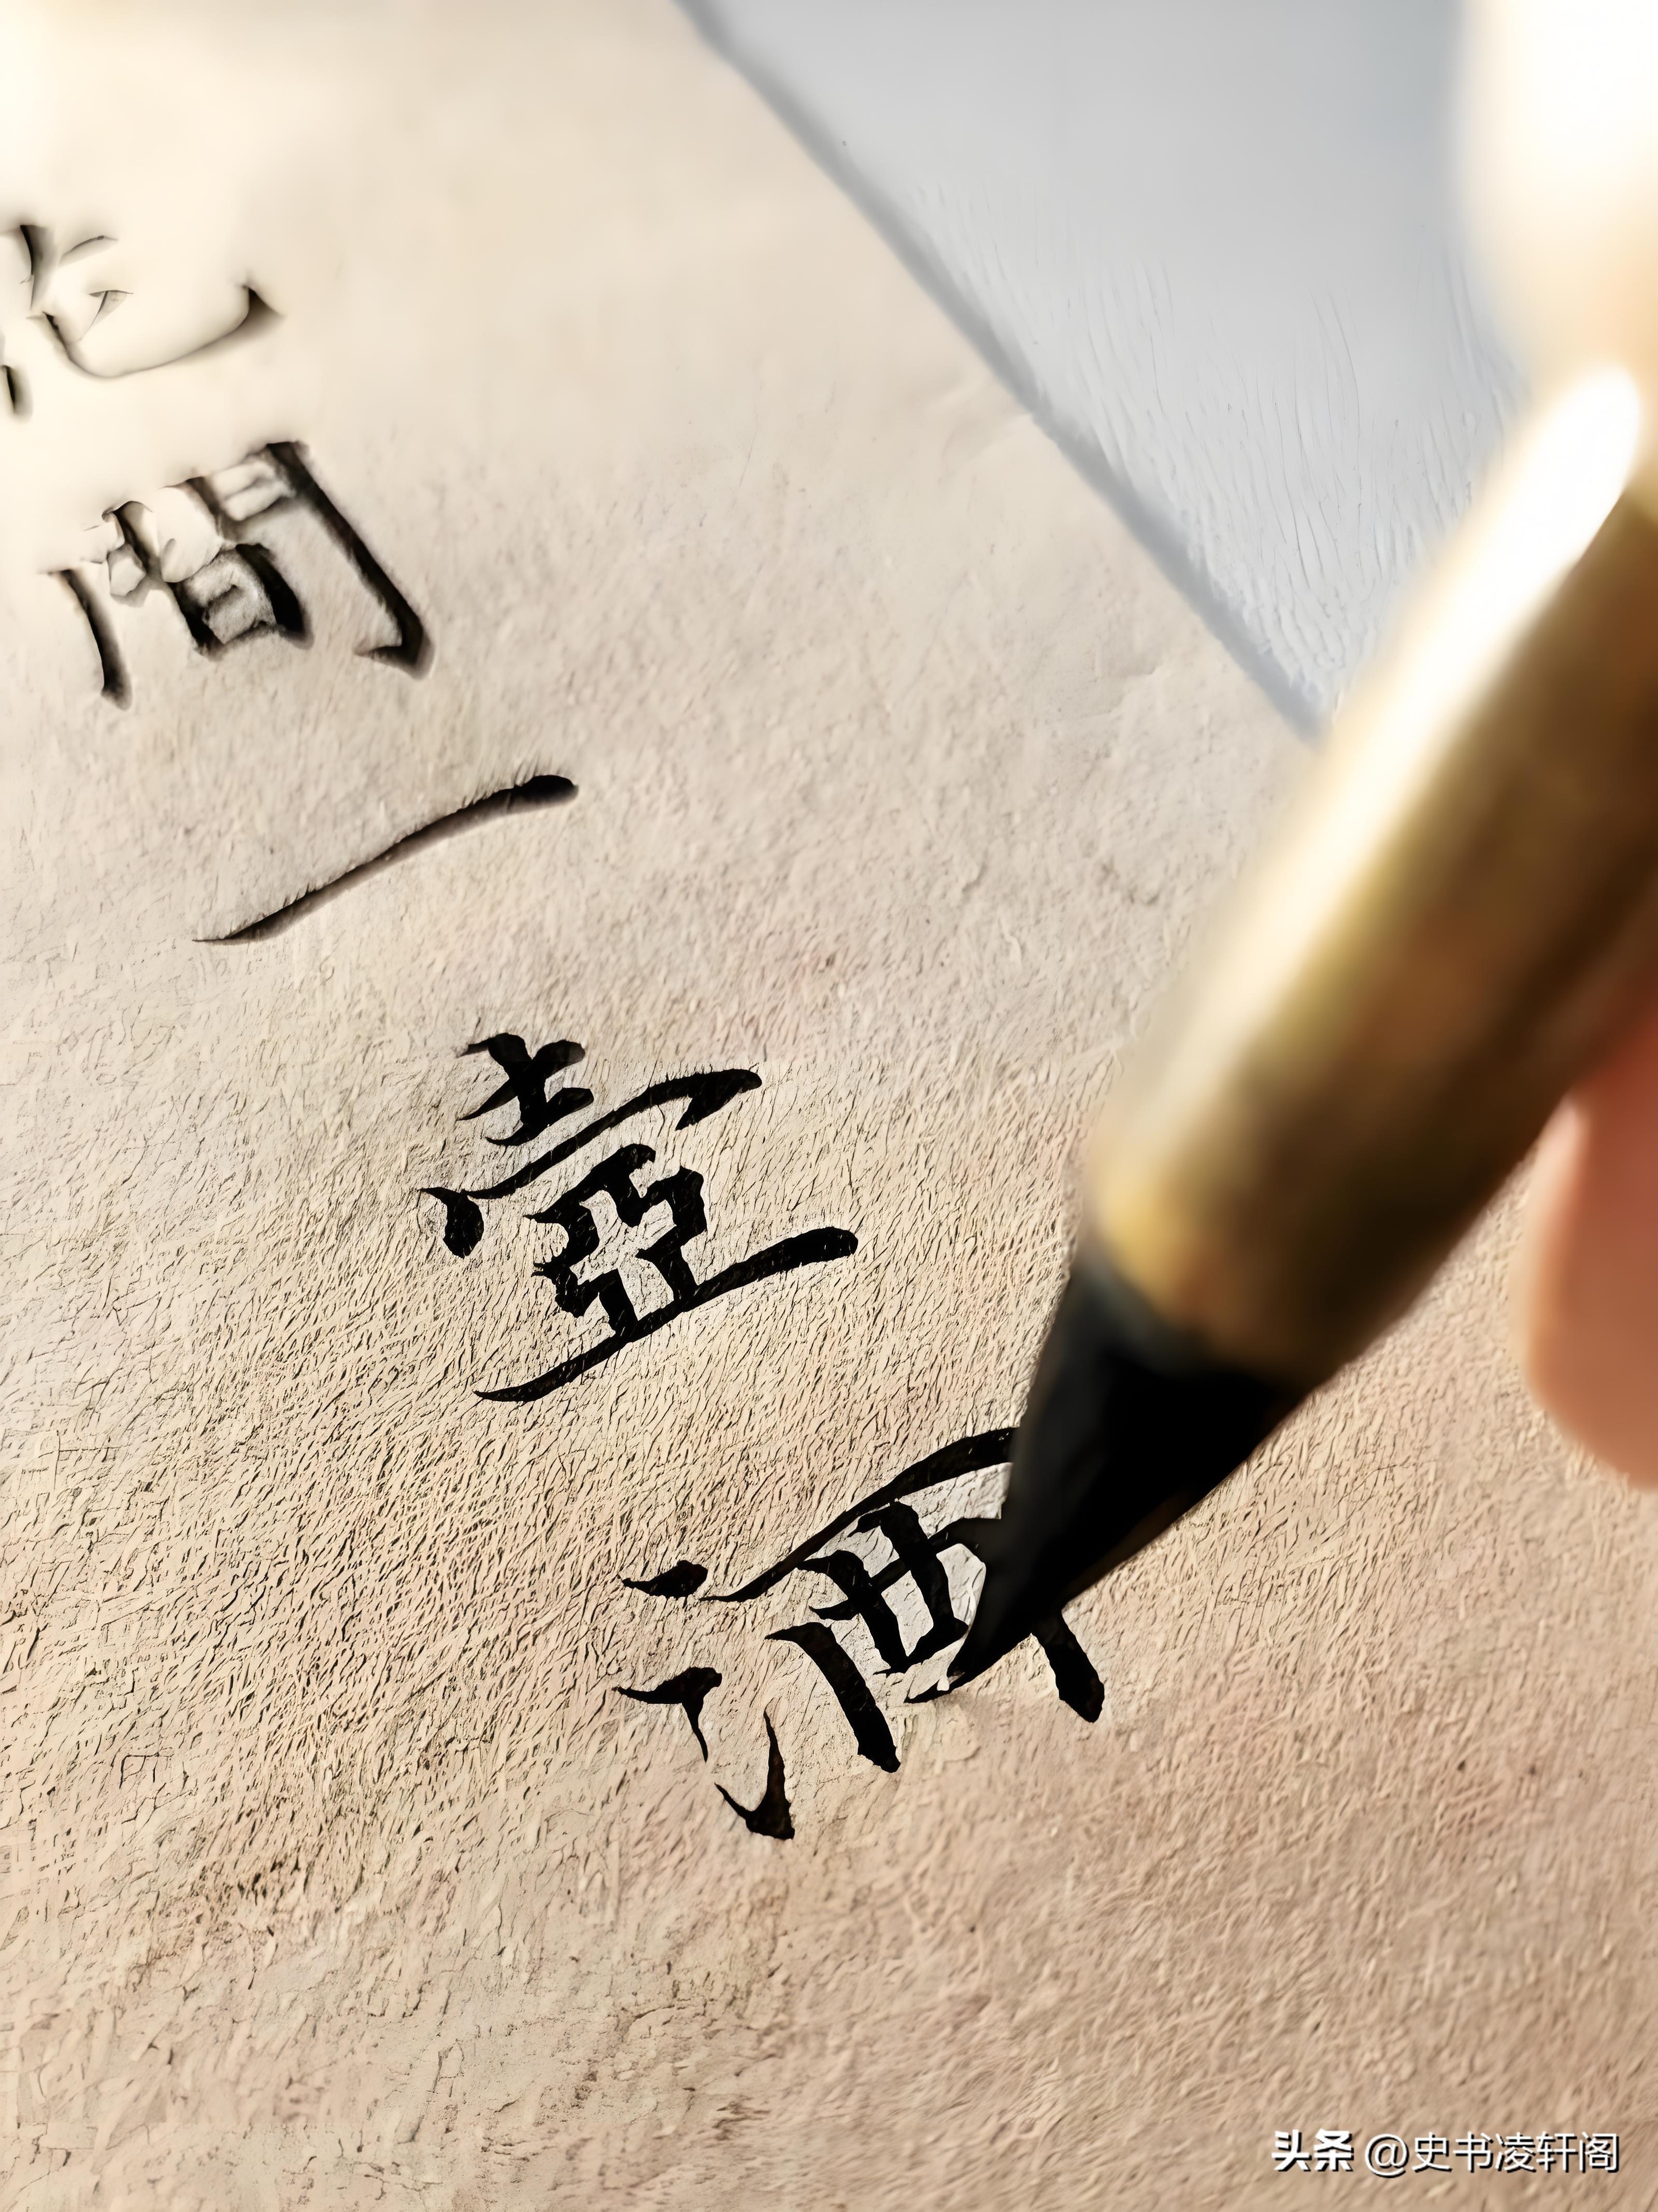 花間一壺酒
头条 @史书凌轩阁